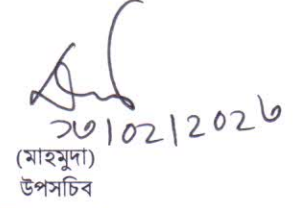 ১৩|০২|২০২৬
(মাহমুদা)
উপসচিব